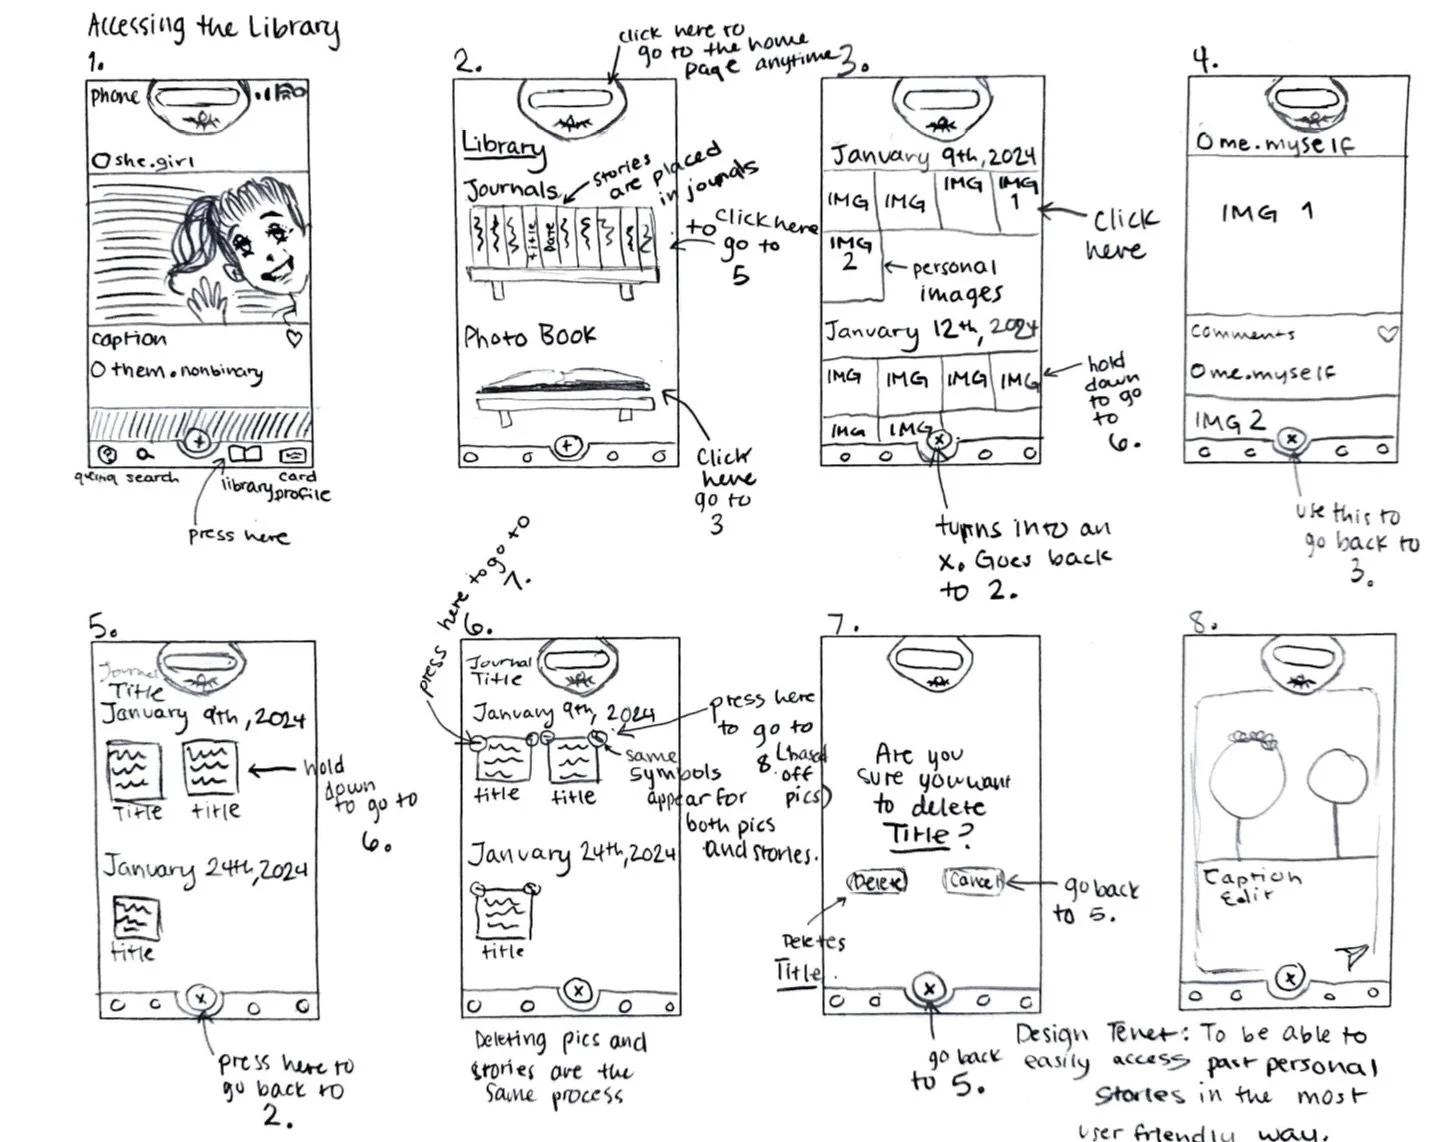 Accessing the Library
1.
phone
she.girl
caption
them.nonbinary
+
search
library
card
profile
press here
2.
click here to
go to the home
page anytime
Library
Journals
stories
are placed
in journals
title
Date
click here
to
go to
5
Photo Book
+
Click
here
go to
3
3.
January 9th, 2024
IMG
IMG
IMG
IMG
1
click
here
IMG
2
personal
images
January 12th, 2024
IMG
IMG
IMG
IMG
hold
down
to go
to
6.
IMG
IMG
x
turns into an
x. Goes back
to 2.
4.
me.myself
IMG 1
comments
me.myself
IMG 2
x
use this to
go back to
3.
5.
Journal
Title
January 9th, 2024
Title
title
hold
down
to go to
6.
January 24th, 2024
title
x
press here to
go back to
2.
press here to go to
7.
6.
Journal
Title
January 9th, 2024
press here
to go to
8. (based
off
pics)
title
title
same
symbols
appear for
both pics
and stories.
January 24th, 2024
title
x
Deleting pics and
stories are the
same process
7.
Are you
sure you want
to delete
Title?
Delete
Cancel
go back
to 5.
Deletes
Title.
x
go back
to 5.
8.
Caption
Edit
x
Design Tenet: To be able to
easily access past personal
stories in the most
user friendly way.